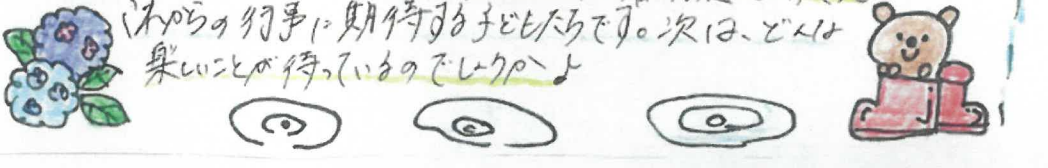 これからの行事に期待する子どもたちです。次は、どんな
楽しいことが待っているのでしょうか♪